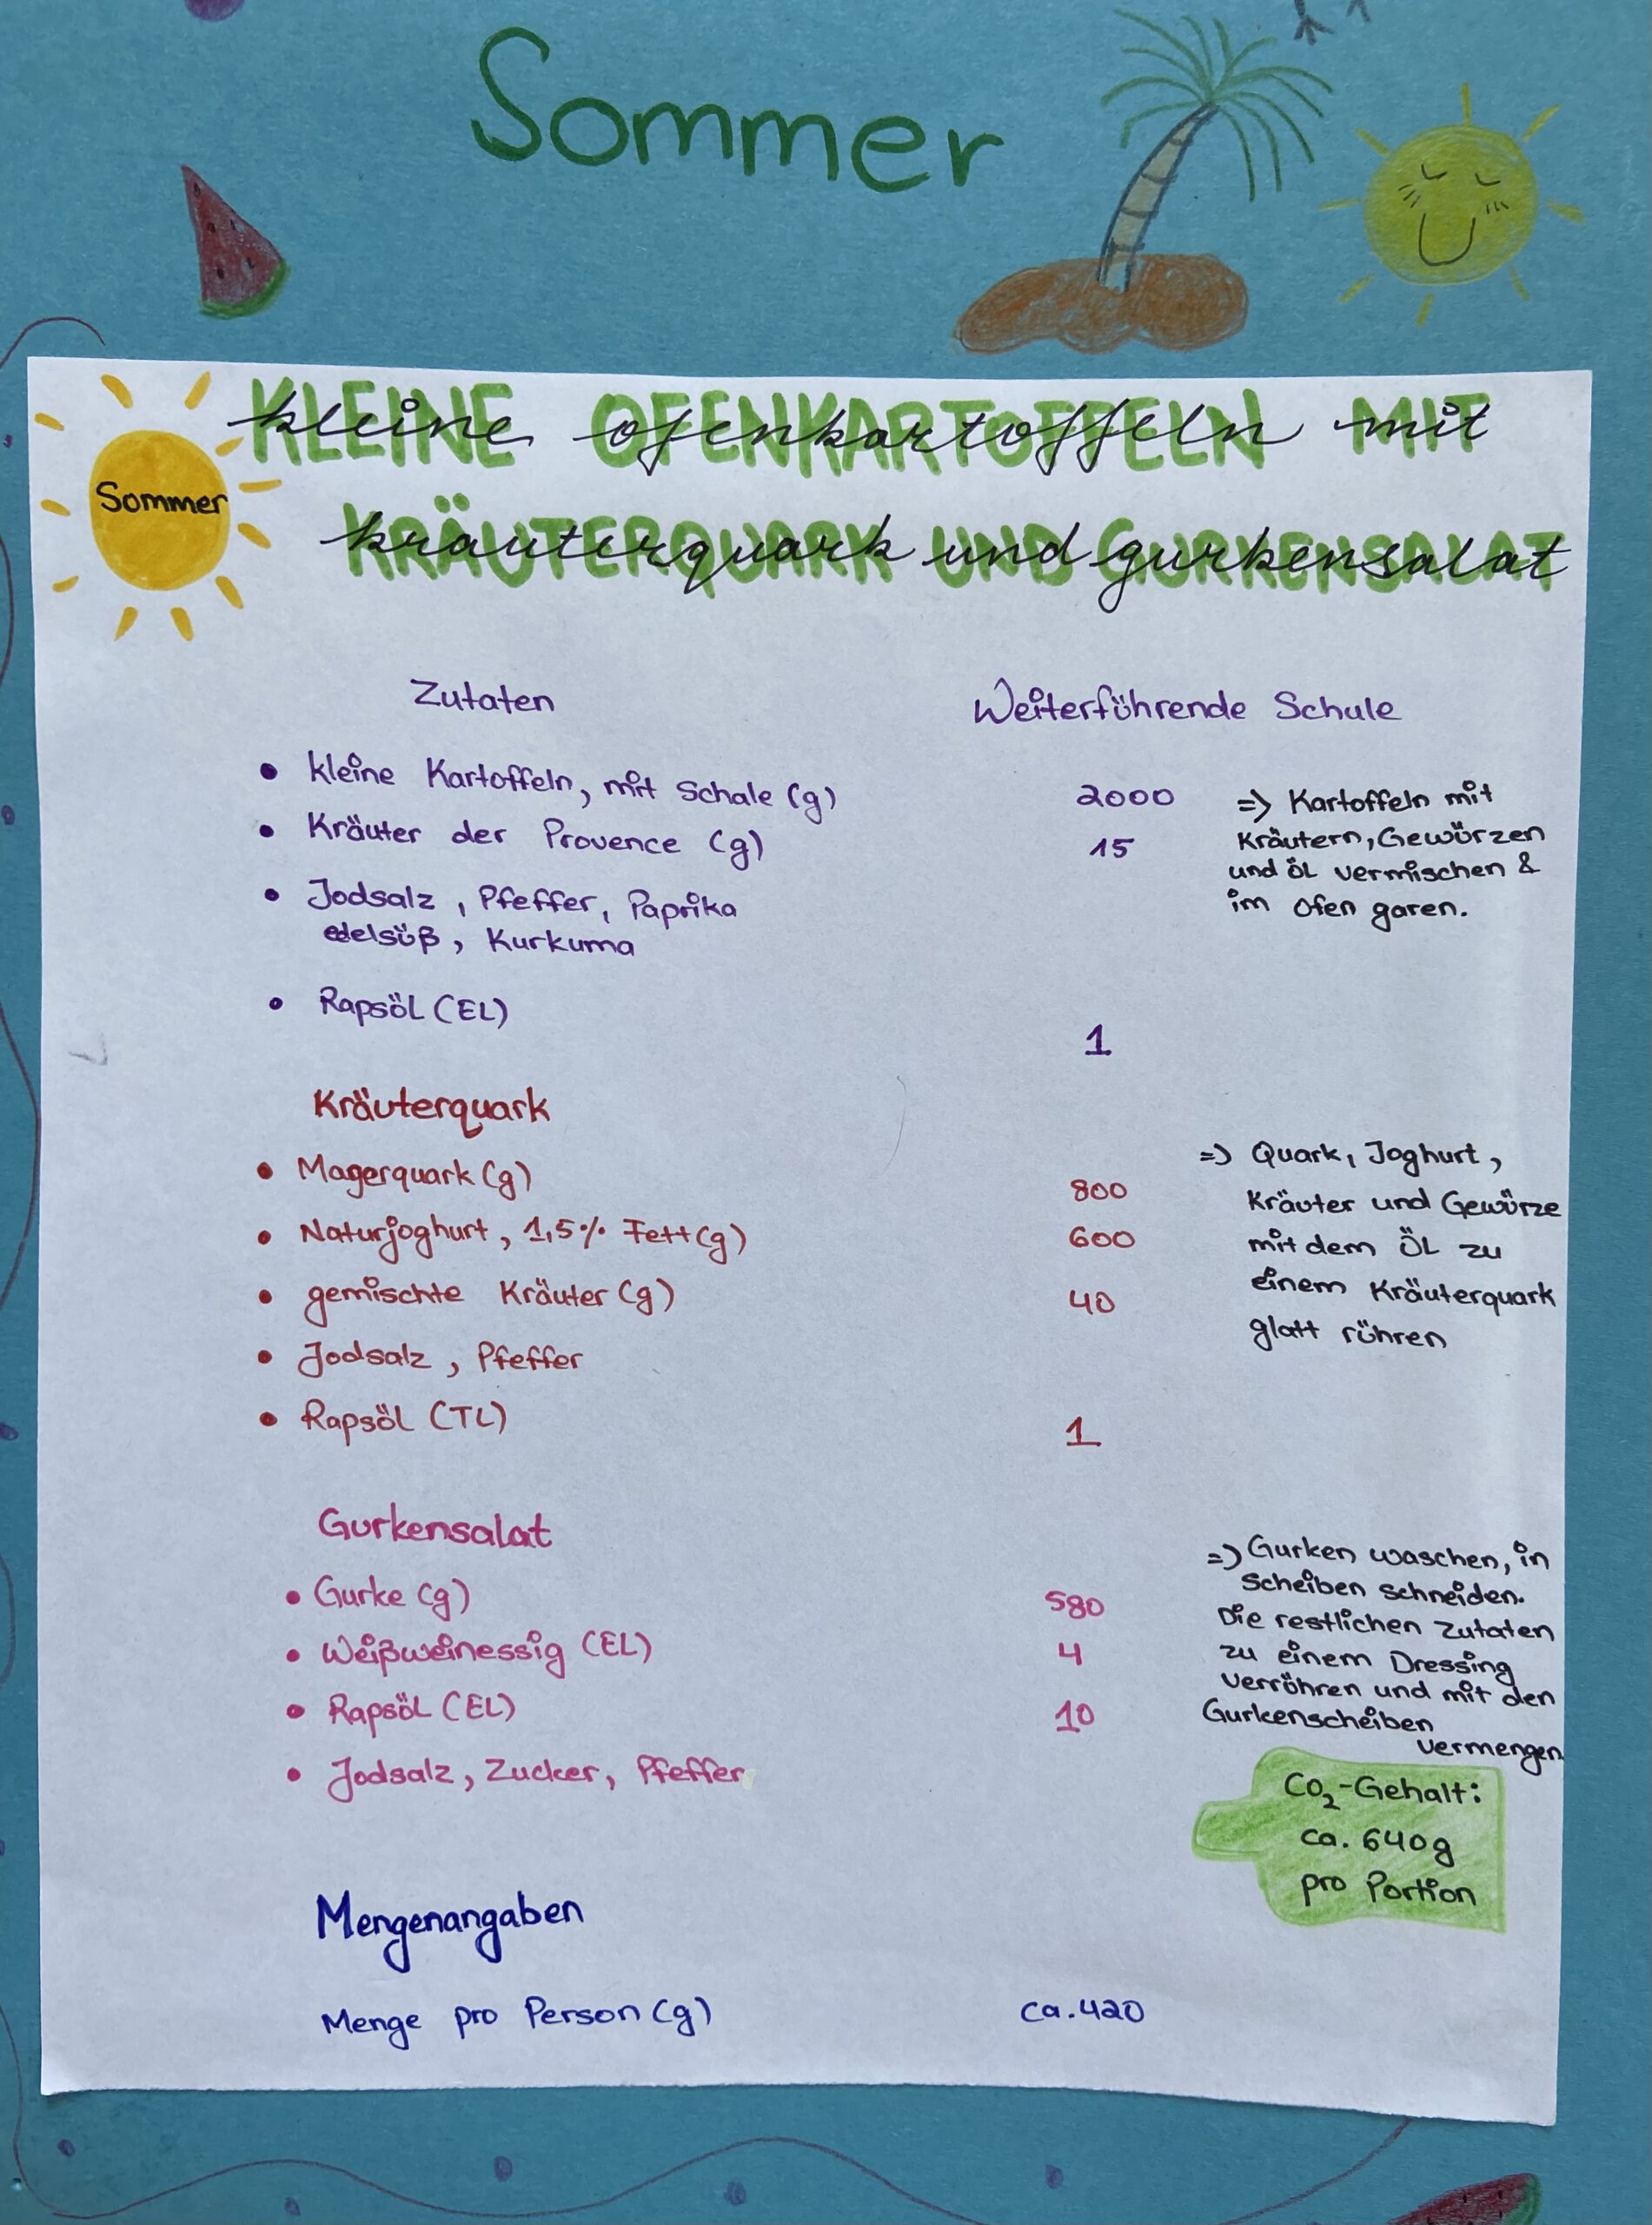 Sommer
KLEINE OFENKARTOFFELN MIT
kleine ofenkartoffeln mit
KRÄUTERQUARK UND GURKENSALAT
kräuterquark und gurkensalat
Sommer
Zutaten
Weiterführende Schule
• kleine Kartoffeln, mit Schale (g) 2000
• Kräuter der Provence (g) 15
• Jodsalz, Pfeffer, Paprika
edelsüß, Kurkuma
• Rapsöl (EL) 1
=> Kartoffeln mit
Kräutern, Gewürzen
und Öl vermischen &
im Ofen garen.
Kräuterquark
• Magerquark (g) 800
• Naturjoghurt, 1,5% Fett (g) 600
• gemischte Kräuter (g) 40
• Jodsalz, Pfeffer
• Rapsöl (TL) 1
=> Quark, Joghurt,
Kräuter und Gewürze
mit dem Öl zu
einem Kräuterquark
glatt rühren
Gurkensalat
• Gurke (g) 580
• Weißweinessig (EL) 4
• Rapsöl (EL) 10
• Jodsalz, Zucker, Pfeffer
=> Gurken waschen, in
Scheiben schneiden.
Die restlichen Zutaten
zu einem Dressing
verrühren und mit den
Gurkenscheiben
vermengen
CO₂-Gehalt:
ca. 640g
pro Portion
Mengenangaben
Menge pro Person (g) ca. 420